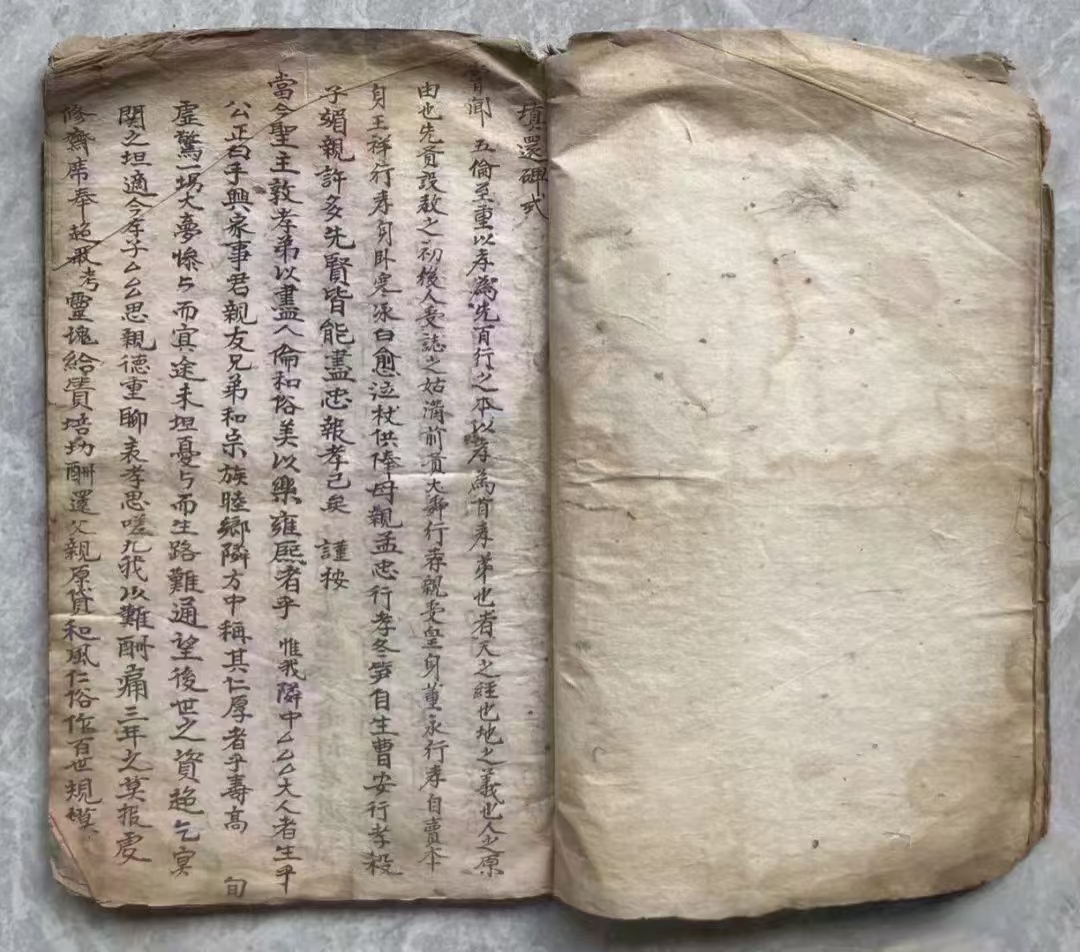 填還碑式
嘗聞 五倫至重以孝為先百行之本以孝為首孝弟也者天之經也地之義也人之原
由也先賢設教之初後人受誌之姑溝前賢大舜行孝親受皇身董永行孝自賣本
身王祥行孝身卧寒氷白愈泣杖供俸母親孟忠行孝冬笋自生曹安行孝殺
子媚親許多先賢皆能盡忠報孝己矣 謹桉
當今聖主敦孝弟以盡人倫和俗美以樂雍熙者乎 惟我隣中厶厶厶大人者生乎
公正白手興家事君親友兄弟和宗族睦鄉隣方中稱其仁厚者乎壽高 旬
虛驚一場大夢慘ㄣ而冥途未坦憂ㄣ而生路難通望後世之資超乞冥
関之坦適今孝子厶厶思親德重聊表孝思嗟凢我以難酬痛三年之莫报虔
修齋席奉 超 考靈魂給賣培塲酬還父親原貸和風仁俗作百世規模